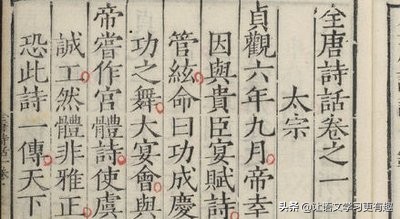 全唐詩話卷之一
太宗
貞觀六年九月帝幸
因與貴臣宴賦詩
管絃命曰功成慶
功之舞大宴會與
帝嘗作宮體詩使虞
誠工然體非雅正
恐此詩一傳天下
头条 @让语文学习更有趣